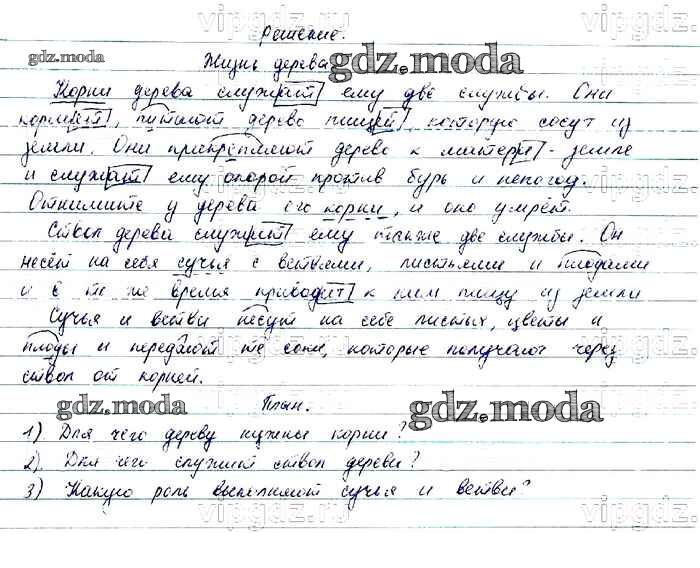 Решение.
Жизнь дерева
Корни дерева служат ему две службы. Они
кормят, питают дерево пищей, которую сосут из
земли. Они прикрепляют дерево к матери-земле
и служат ему опорой против бурь и непогод.
Отнимите у дерева его корни, и оно умрёт.
Ствол дерева служит ему также две службы. Он
несёт на себя сучья с ветвями, листьями и плодами
и в то же время приводит к ним пищу из земли
Сучья и ветви несут на себе листья, цветы и
плоды и передают те соки, которые получают через
ствол от корней.
План.
1) Для чего дереву нужны корни?
2) Для чего служит ствол дерева?
3) Какую роль выполняют сучья и ветви?
gdz.moda
gdz.moda
gdz.moda
gdz.moda
vipgdz.ru
vipgdz.ru
vipgdz.ru
vipgdz.ru